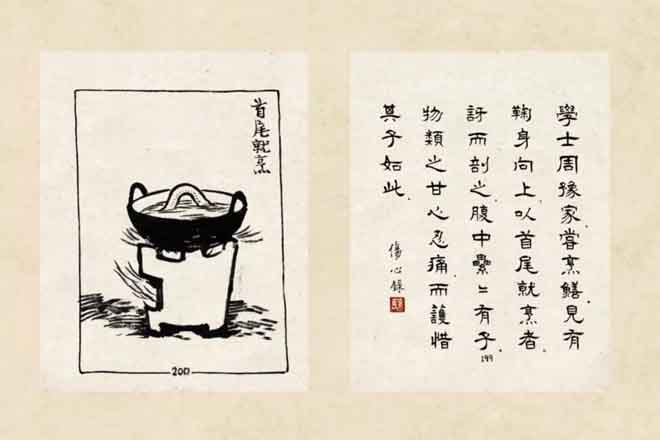 學士周豫家嘗烹鱔.見有
鞠身向上以首尾就烹者.
訝而剖之.腹中纍〻有子.
物類之甘心忍痛.而護惜
其子如此.
傷心錄
199
首尾就烹
200